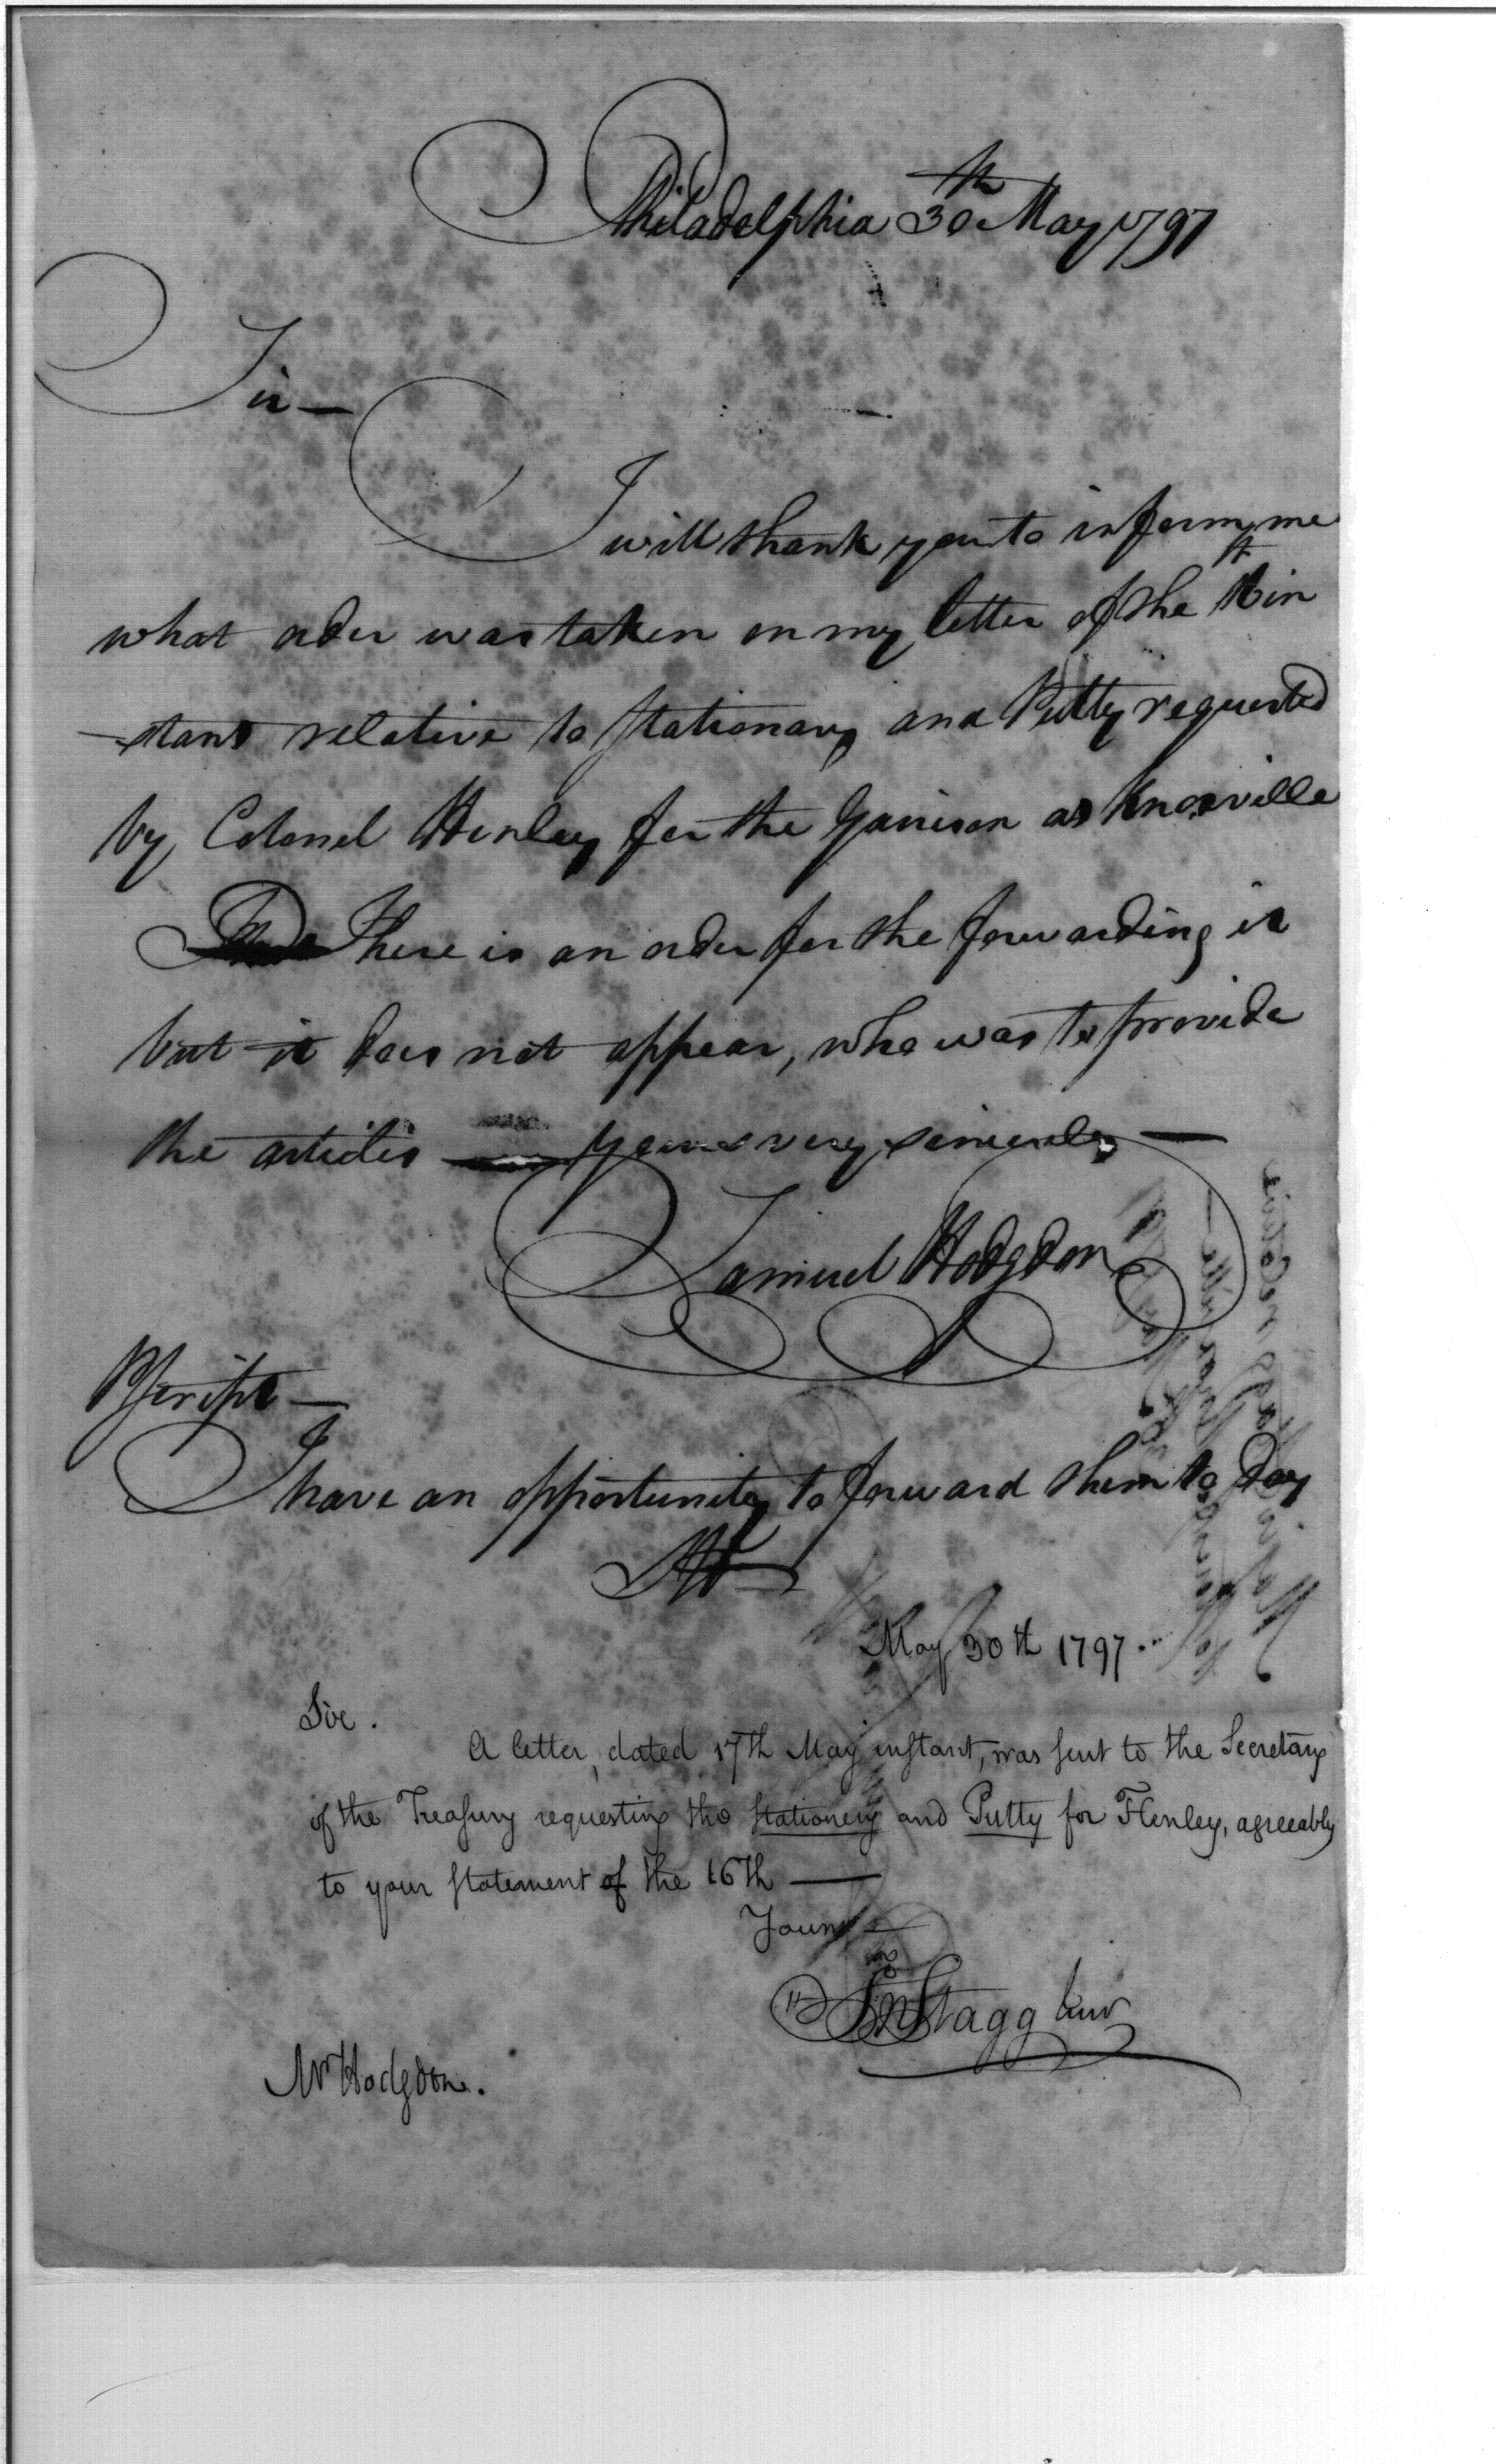 Philadelphia 30th May 1797
Sir —
I will thank you to inform me
what order was taken on my letter of the in
-stant relative to Stationary and Putty requested
by Colonel Henley for the Garrison at Knoxville
There is an order for the forwarding it
but it does not appear, who was to provide
the articles — yours very sincerely —
Samuel Hodgdon
PScript —
I have an opportunity to forward them to day
SH
May 30th 1797.
Sir.
A letter, dated 17th May instant, was sent to the Secretary
of the Treasury requesting the Stationery and Putty for Henley, agreeably
to your statement of the 16th —
Yours —
Jno Stagg Junr
Mr Hodgdon.